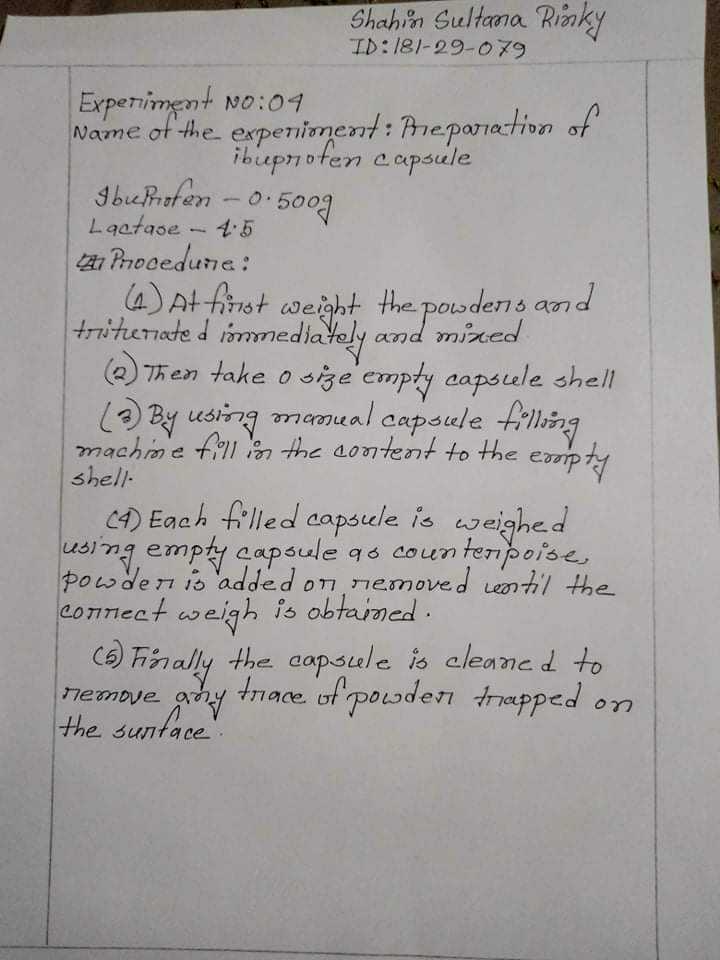 Shahin Sultana Rinky
ID: 181-29-079
Experiment NO: 04
Name of the experiment: Preparation of
ibuprofen capsule
Ibuprofen - 0.500g
Lactase - 4.5
Procedure:
(1) At first weight the powders and
triturated immediately and mixed
(2) Then take 0 size empty capsule shell
(3) By using manual capsule filling
machine fill in the content to the empty
shell.
(4) Each filled capsule is weighed
using empty capsule as counterpoise,
powder is added or removed until the
correct weigh is obtained.
(5) Finally the capsule is cleaned to
remove any trace of powder trapped on
the surface.